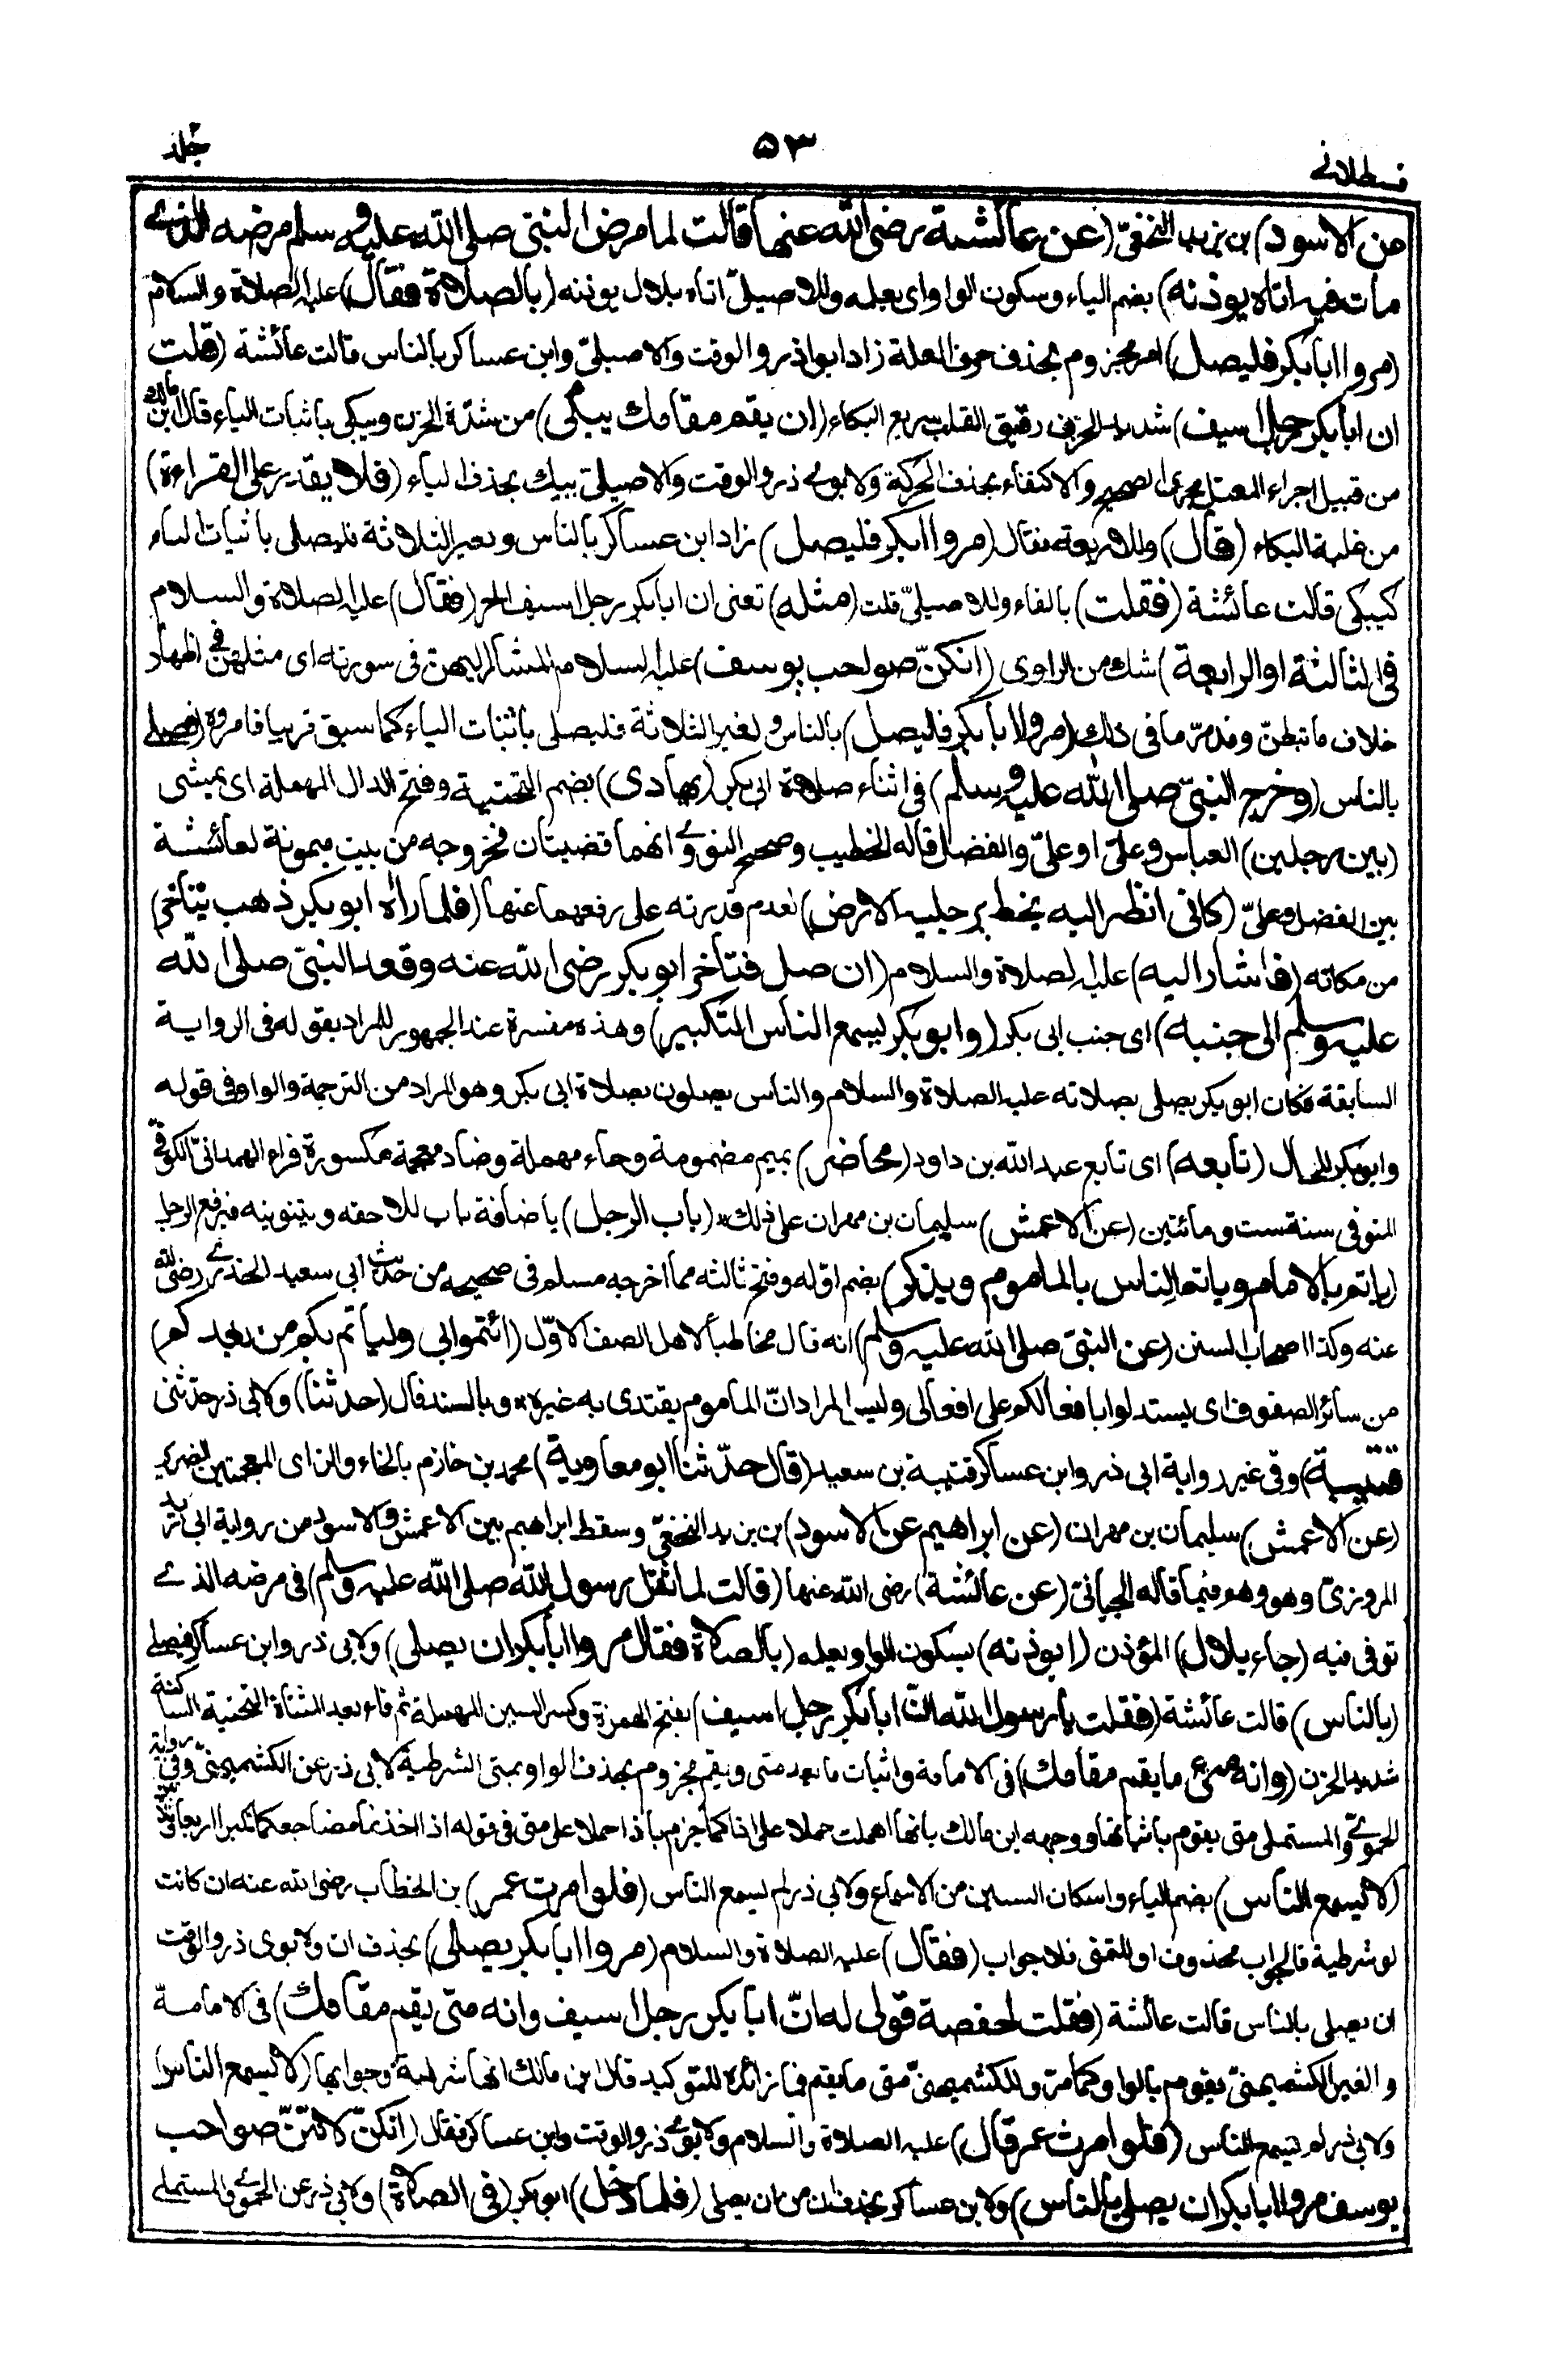 قسطلانے
٥٣
جلد
عن الاسود) بن يزيد النخعيّ (عن عائشة رضى الله عنها قالت لما مرض النبى صلى الله عليه وسلم مرضه الذے
مات فيه اتاه يوذنه) بضم الياء وسكون الواو اى يعلمه وللاصيلىّ اتاه بلال يوذنه (بالصلاة فقال) عليه الصلاة والسلام
(مروا ابا بكر فليصل) امر مجزوم بحذف حرف العلة زاد ابو اذر والوقت والاصيلىّ وابن عساكر بالناس قالت عائشة (قلت
ان ابا بكر رجل اسيف) شديد الحزن رقيق القلب سريع البكاء (ان يقم مقامك يبكى) من شدّة الحزن ويبكى باثبات الياء قال ابن مالك
من قبيل اجراء المعتل مجرى الصحيح والاكتفاء بحذف الحركة ولابوى ذر والوقت والاصيلىّ يبك بحذف الياء (فلا يقدر على القراءة)
من غلبة البكاء (قال) وللاربعة فقال (مروا ابا بكر فليصل) زاد ابن عساكر بالناس ولغير الثلاثة فليصلى باثبات الياء
كيبكى قالت عائشة (فقلت) بالفاء وللاصيلىّ قلت (مثله) تعنى ان ابا بكر رجل اسيف الخ (فقال) عليه الصلاة والسلام
فى الثالثة او الرابعة) شك من الراوى (انكنّ صواحب يوسف) عليه السلام المشار اليهنّ فى سورته اى مثلهنّ فى اظهار
خلاف ما تبطنّ وقد مرّ ما فى ذلك (مروا ابا بكر فليصل) بالناس ولغير الثلاثة فليصلى باثبات الياء كما سبق قريبا فامروه (فصلے
بالناس (وخرج النبىّ صلى الله عليه وسلم) فى اثناء صلاة ابى بكر (يهادى) بضم التحتية وفتح الدال المهملة اى يمشى
(بين رجلين) العباس وعلىّ او علىّ والفضل قاله الخطيب وصحح النووى انهما قضيتان فخروجه من بيت ميمونة لعائشة
بين الفضل وعلىّ (كانى انظر اليه يخط برجليه الارض) لعدم قدرته على رفعهما عنها (فلما رآه ابو بكر ذهب يتأخر)
من مكانه (فاشار اليه) عليه الصلاة والسلام (ان صل فتأخر ابو بكر رضى الله عنه وقعد النبىّ صلى الله
عليه وسلم الى جنبه) اى جنب ابى بكر (وابو بكر يسمع الناس التكبير) وهذه مفسرة عند الجمهور للمراد بقوله فى الرواية
السابقة فكان ابو بكر يصلى بصلاته عليه الصلاة والسلام والناس يصلون بصلاة ابى بكر وهو المراد من الترجمة والواو فى قوله
وابو بكر للحال (تابعه) اى تابع عبد الله بن داود (محاضر) بميم مضمومة وحاء مهملة وضاد معجمة مكسورة فراء الهمدانىّ الكوفىّ
المتوفى سنة ست ومائتين (عن الاعمش) سليمان بن مهران على ذلك* (باب الرجل) باضافة باب للاحقه وبتنوينه فيرفع الرجل
(يأتم بالامام ويأتم الناس بالماموم ويذكر) بضم اوّله وفتح ثالثه مما اخرجه مسلم فى صحيحه من حديث ابى سعيد الخدرى رضى الله
عنه وكذا اصحاب السنن (عن النبىّ صلى الله عليه وسلم) انه قال مخاطبا لاهل الصف الاوّل (ائتموا بى وليأتم بكم من بعدكم)
من سائر الصفوف اى يستدلوا بافعالكم على افعالى وليس المراد انّ الماموم يقتدى به غيره* وبالسند قال (حدثنا) ولابى ذر حدّثنى
قتيبة) وفى غير رواية ابى ذر وابن عساكر قتيبة بن سعيد (قال حدّثنا ابو معاوية) محمد بن خازم بالخاء والزاى المعجمتين الضرير
(عن الاعمش) سليمان بن مهران (عن ابراهيم عن الاسود) بن يزيد النخعىّ وسقط ابراهيم بين الاعمش والاسود من رواية ابى زيد
المروزىّ وهو وهم فيما قاله الجيانى (عن عائشة) رضى الله عنها (قالت لما ثقل رسول الله صلى الله عليه وسلم) فى مرضه الذے
توفى فيه (جاء بلال) المؤذن (يوذنه) بسكون الواو يعلمه (بالصلاة فقال مروا ابا بكر ان يصلى) ولابى ذر وابن عساكر فيصلے
(بالناس) قالت عائشة (فقلت يا رسول الله انّ ابا بكر رجل اسيف) بفتح الهمزة وكسر السين المهملة ثم فاء بعد المثناة التحتية الساكنة
شديد الحزن (وانه متى ما يقم مقامك) فى الامامة واثبات ما بعد متى ويقم مجزوم بحذف الواو بمتى الشرطية لابى ذر عن الكشميهنىّ وفى رواية
الحموى والمستملى متى يقوم باثباتها ووجهه ابن مالك بانها اهملت حملا على اذا كما جزم باذا حملا على متى فى قوله اذا اخذتما مضاجعكما تكبرا اربعا وثلاثين
(لا يسمع الناس) بضم الياء واسكان السين من الاسماع ولابى ذر لم يسمع الناس (فلو امرت عمر) بن الخطاب رضى الله عنه ان كانت
لو شرطية فالجواب محذوف او للتمنى فلا جواب (فقال) عليه الصلاة والسلام (مروا ابا بكر يصلى) بحذف ان ولابوى ذر والوقت
ان يصلى بالناس قالت عائشة (فقلت لحفصة قولى له انّ ابا بكر رجل اسيف وانه متى يقم مقامك) فى الامامة
ولغير الكشميهنىّ يقوم بالواو كما مرّ وللكشميهنىّ متى ما يقم فما زائدة للتوكيد قال ابن مالك انها شرطية وجوابها (لا يسمع الناس)
ولابى ذر لم يسمع الناس (فلو امرت عمر قال) عليه الصلاة والسلام ولابوى ذر والوقت وابن عساكر فقال (انكنّ لانتنّ صواحب
يوسف مروا ابا بكر ان يصلى بالناس) ولابن عساكر بحذف ان من ان يصلى (فلما دخل) ابو بكر (فى الصلاة) ولابى ذر عن الحموى والمستملے